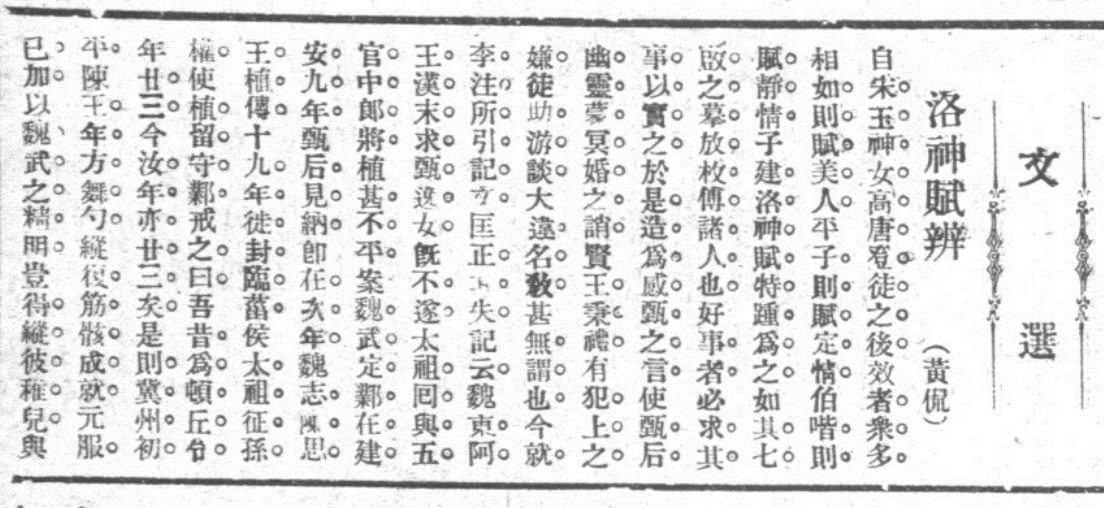 文選
洛神賦辨
（黃侃）
自宋玉神女高唐登徒之後效者衆多
相如則賦美人平子則賦定情伯喈則
賦靜情子建洛神賦特踵爲之如其七
啟之摹放枚傅諸人也好事者必求其
事以實之於是造爲感甄之言使甄后
幽靈蒙冥婚之誚賢王秉禮有犯上之
嫌徒助游談大違名敎甚無謂也今就
李注所引記文匡正其失記云魏東阿
王漢末求甄逸女旣不遂太祖囘與五
官中郎將植甚不平案魏武定鄴在建
安九年甄后見納卽在次年魏志陳思
王植傳十九年徙封臨菑侯太祖征孫
權使植留守鄴戒之曰吾昔爲頓丘令
年廿三今汝年亦廿三矣是則冀州初
平陳王年方舞勺縱復筋骸成就元服
已加以魏武之精明豈得縱彼稚兒與